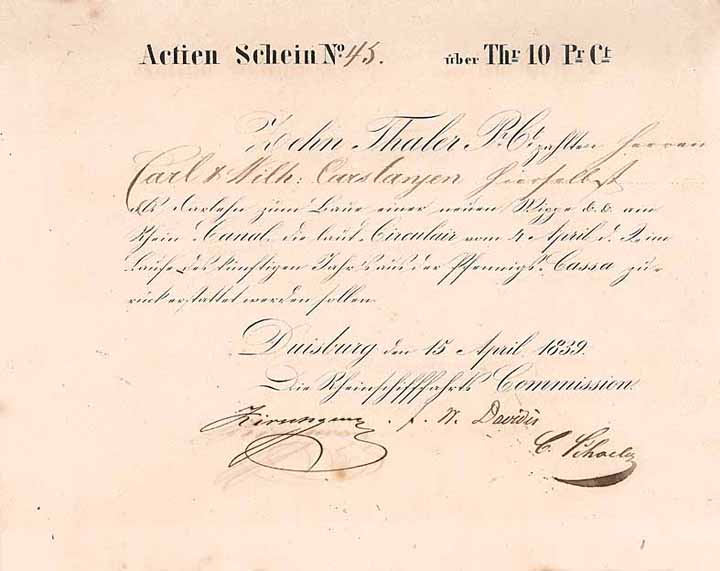 Actien Schein No. 45. über Thr 10 Pr Ct
Zehn Thaler Pr. Ct zahlten Herren
Carl & Wilh: Carstanjen hierselbst
als Darlehn zum Baue einer neuen Wippe &.&. am
Rhein-Canal, die laut Circulair vom 4 April d. J. im
Laufe des künftigen Jahrs aus der Pfennigs-Cassa zu-
rückerstattet werden sollen.
Duisburg den 15 April 1839.
Die Rheinschifffahrts Commission
Davidis
C.